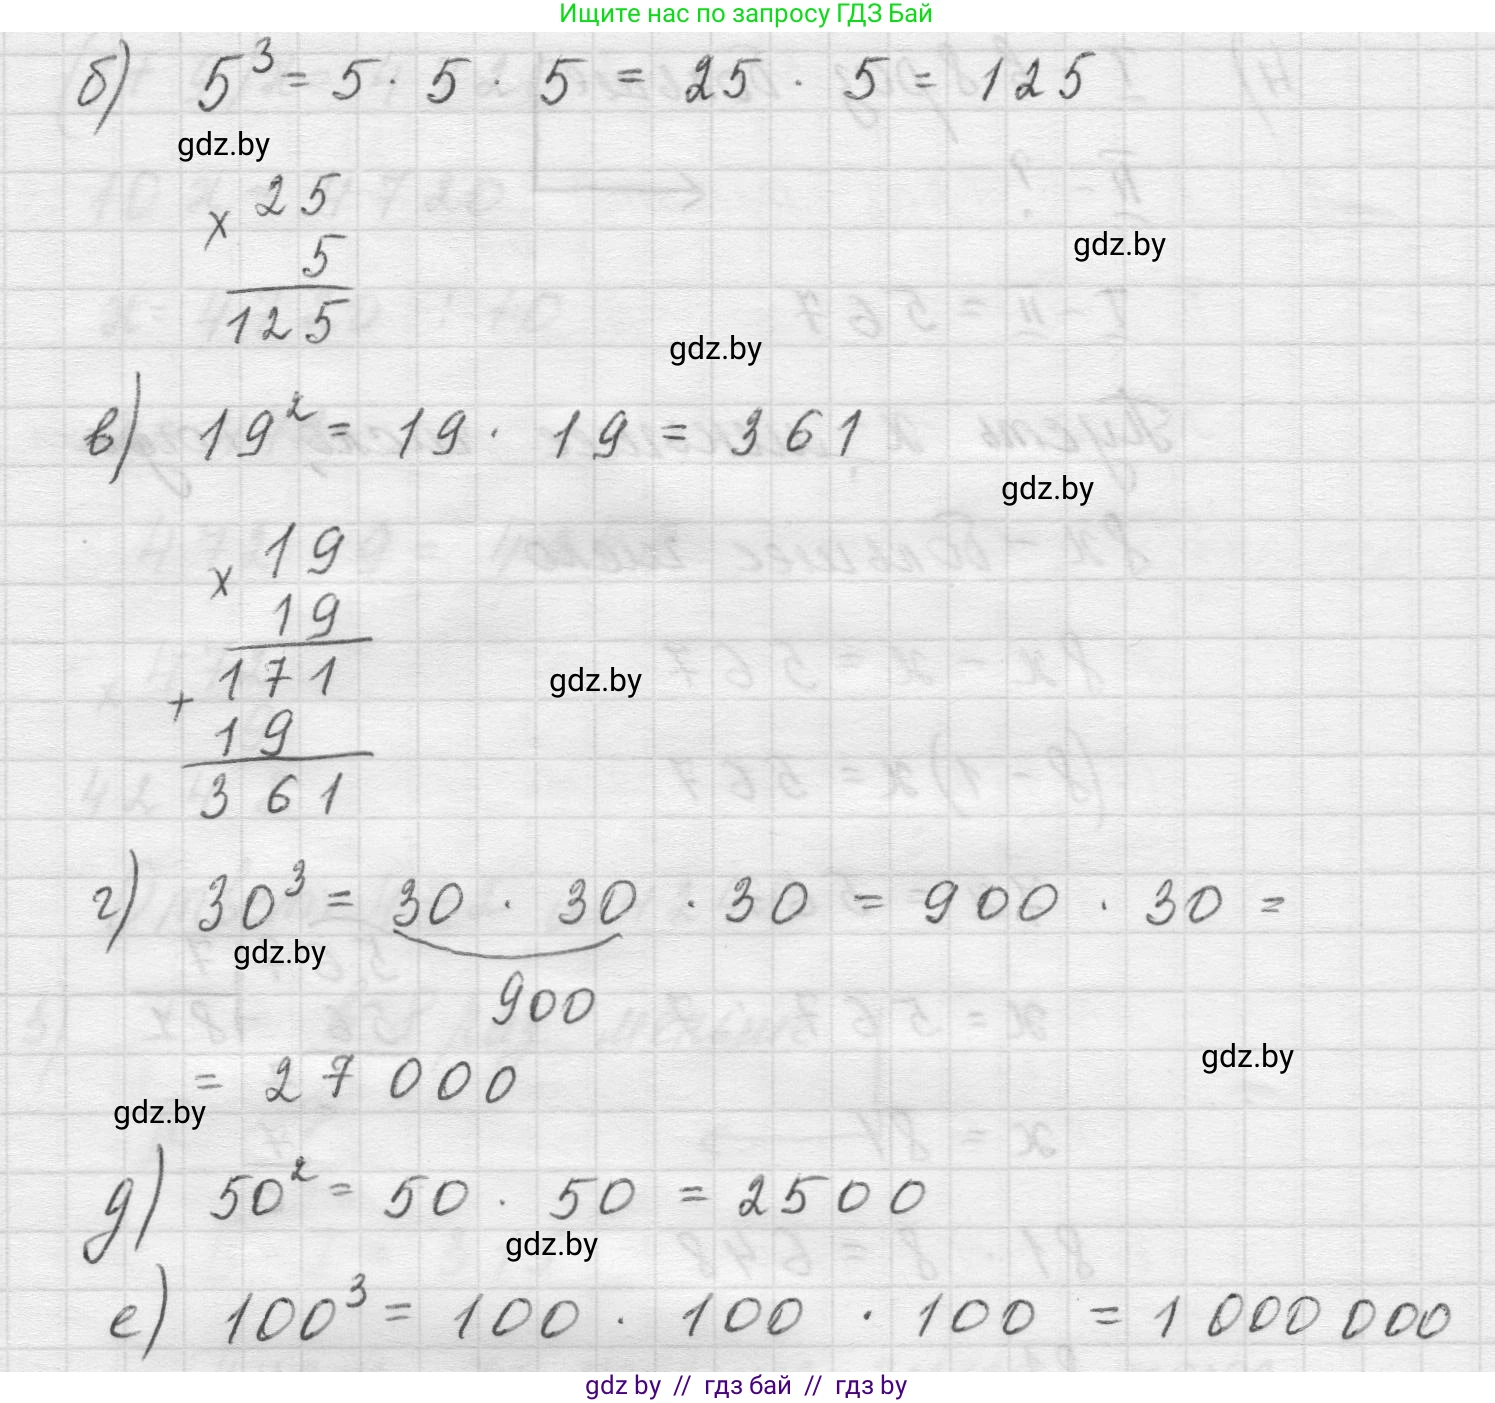 Ищите нас по запросу ГДЗ Бай
б) 5³ = 5 · 5 · 5 = 25 · 5 = 125
gdz.by
× 25
5
gdz.by
125
gdz.by
в) 19² = 19 · 19 = 361
gdz.by
× 19
19
171
gdz.by
+ 19
361
г) 30³ = 30 · 30 · 30 = 900 · 30 =
gdz.by
900
gdz.by
= 27 000
gdz.by
д) 50² = 50 · 50 = 2500
gdz.by
е) 100³ = 100 · 100 · 100 = 1 000 000
gdz by // гдз бай // гдз by